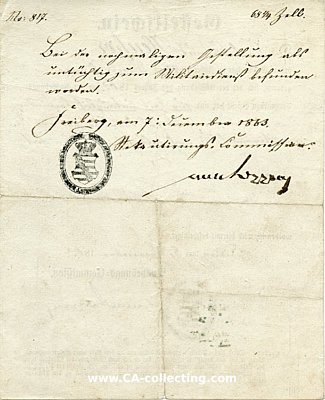 No: 817. 68¾ Zoll.
Bei der nochmaligen Gestellung als
untüchtig zum Militairdienst befunden
worden.
Freiberg, am 7. December 1863.
Rekrutirungs-Commission.
www.CA-collecting.com